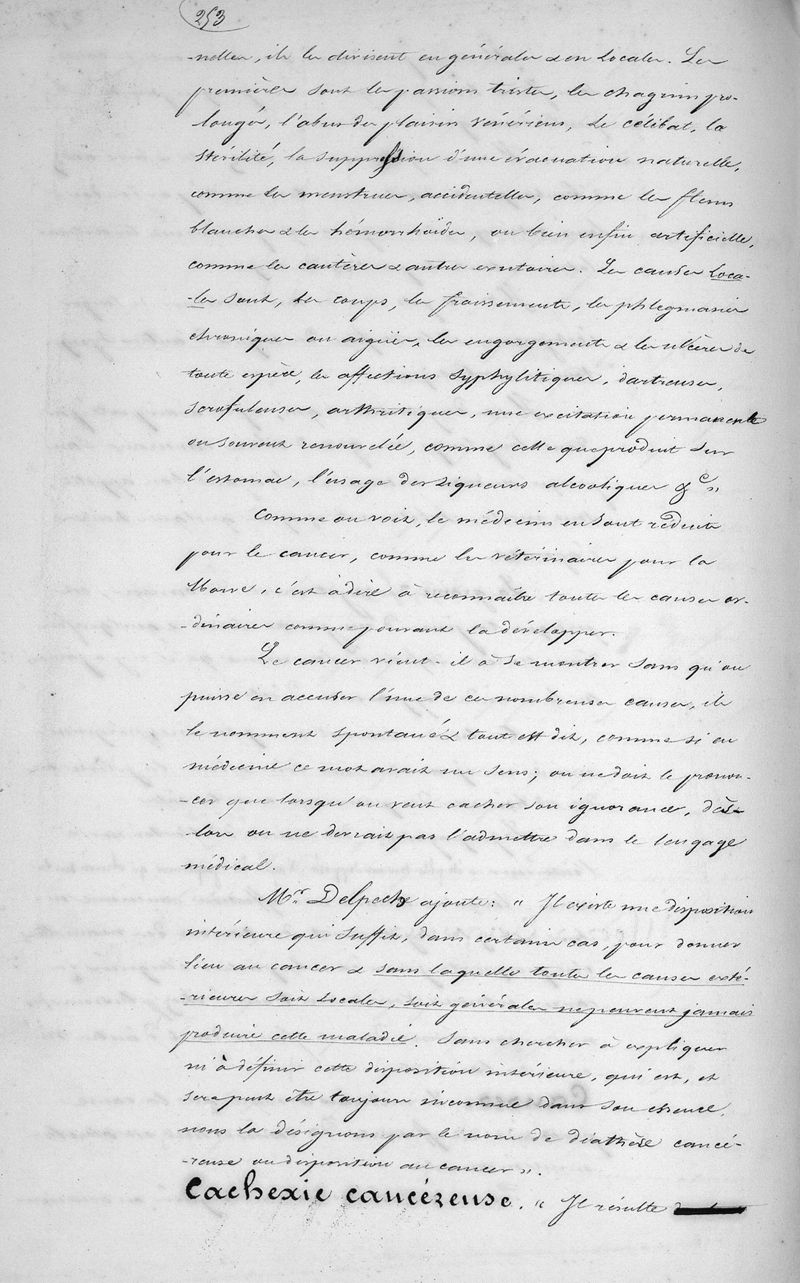 253
-nelles, ils les divisent en générales & en Locales. Les
premières sont les passions tristes, les chagrins pro-
longés, l'abus des plaisirs vénériens, le célibat, la
stérilité, la suppression d'une évacuation naturelle,
comme les menstrues, accidentelles, comme les fleurs
blanches & les hémorrhoïdes, ou bien enfin artificielle,
comme les cautères & autres exutoires. Les causes Loca-
-les sont, les coups, les froissements, les phlegmasies
chroniques ou aigües, les engorgements & les ulcères de
toute espèce, les affections syphylitiques, dartreuses,
scrofuleuses, arthritiques, une excitation permanente
ou souvent renouvelée, comme celle que produit sur
l'estomac, l'usage des Liqueurs alcooliques &c "
Comme on voit, les médecins en sont réduits
pour le cancer, comme les vétérinaires pour la
Morve, c'est à dire à reconnaître toutes les causes or-
-dinaires comme pouvant la développer.
Le cancer vient-il à se montrer sans qu'on
puisse en accuser l'une de ces nombreuses causes, ils
le nomment spontané & tout est dit, comme si en
médecine ce mot avait un sens; on ne doit le pronon-
-cer que lorsqu'on veut cacher son ignorance, dès-
lors on ne devrait pas l'admettre dans le langage
médical.
Mr. Delpech ajoute: " Il existe une disposition
intérieure qui suffit, dans certains cas, pour donner
lieu au cancer & sans laquelle toutes les causes exté-
-rieures soit Locales, soit générales ne peuvent jamais
produire cette maladie. Sans chercher à expliquer
ni à définir cette disposition intérieure, qui est, et
sera peut être toujours inconnue dans son essence,
nous la désignons par le nom de diathèse cancé-
-reuse ou disposition au cancer ".
Cachexie cancéreuse. " Il résulte